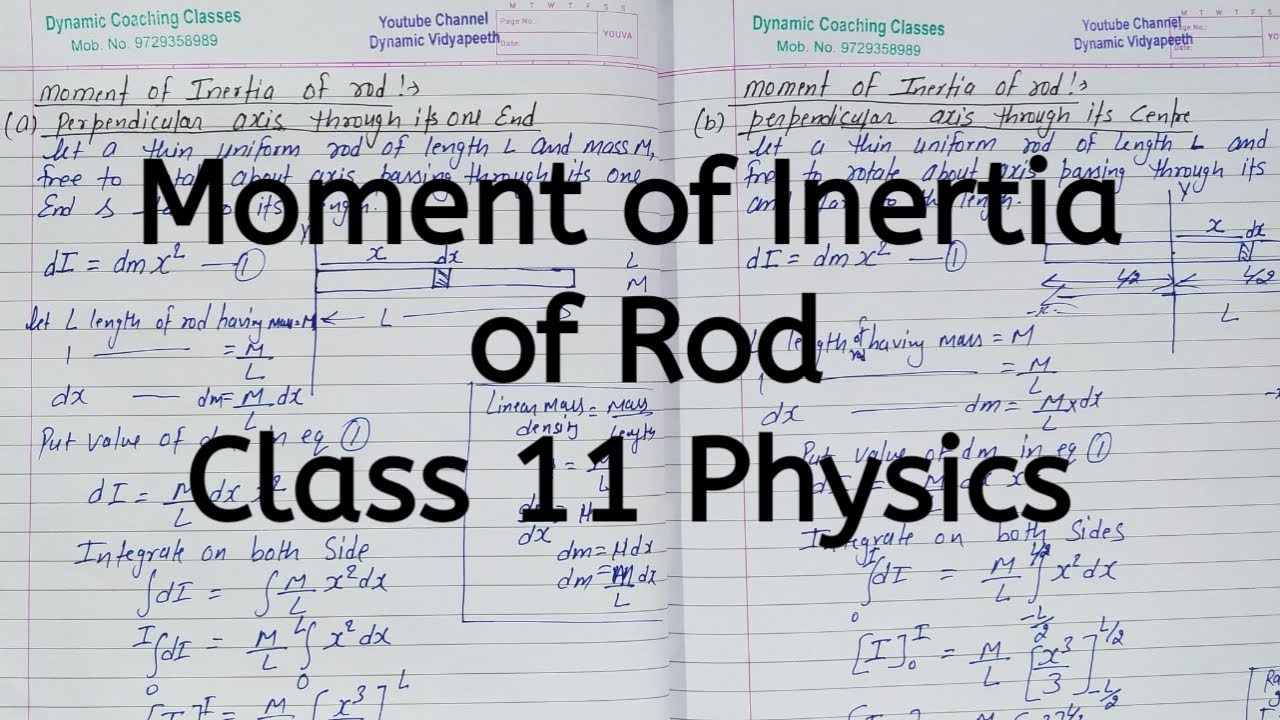 Dynamic Coaching Classes
Mob. No. 9729358989
Youtube Channel
Dynamic Vidyapeeth
M T W T F S S
Page No.:
Date:
YOUVA
moment of Inertia of rod :→
(a) Perpendicular axis through its one End
let a thin uniform rod of length L and mass M,
free to about axis passing through its one
End & its length.
dI = dm x² —①
x dx
L
M
L
let L length of rod having mass = M
1 —— = M/L
dx — dm = M/L dx
Put value of dm in eq ①
dI = M/L dx x²
Integrate on both Side
∫dI = ∫ M/L x² dx
∫₀ᴵ dI = M/L ∫₀ᴸ x² dx
M [x³
Linear mass density = mass/length
dm = μ dx
dm = M/L dx
Dynamic Coaching Classes
Mob. No. 9729358989
Youtube Channel
Dynamic Vidyapeeth
M T W T F S
YO
moment of Inertia of rod :→
(b) perpendicular axis through its Centre
let a thin uniform rod of length L and
free to rotate about axis passing through its
and length.
Y
x dx
dI = dm x² —①
L/2 L/2
L
length of rod having mass = M
= M/L
dx —— dm = M/L x dx
Put value of dm in eq ①
Integrate on both Sides
∫₀ᴵ dI = M/L ∫ x² dx
L/2
-L/2
[I]₀ᴵ = M/L [x³/3] L/2 -L/2
Moment of Inertia
of Rod
Class 11 Physics